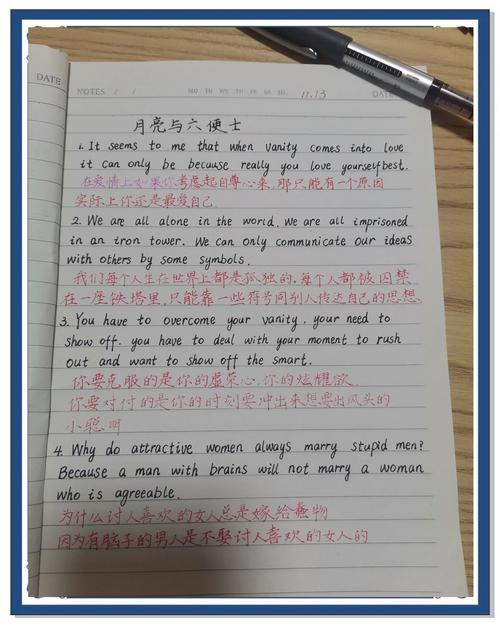 DATE
NOTES / / MO TU WE TH FR SA SU 11.13 DATE
月亮与六便士
1. It seems to me that when vanity comes into love
it can only be because really you love yourselfbest.
在爱情上如果你考虑起自尊心来,那只能有一个原因
实际上你还是最爱自己.
2. We are all alone in the world. we are all imprisoned
in an iron tower. We can only communicate our ideas
with others by some symbols.
我们每个人生在世界上都是孤独的.每个人都被囚禁
在一座铁塔里,只能靠一些符号同别人传达自己的思想.
3. You have to overcome your vanity. your need to
show off. you have to deal with your moment to rush
out and want to show off the smart.
你要克服的是你的虚荣心.你的炫耀欲.
你要对付的是你的时刻要冲出来想要出风头的
小聪明
4. Why do attractive women always marry stupid men?
Because a man with brains will not marry a woman
who is agreeable.
为什么讨人喜欢的女人总是嫁给蠢物
因为有脑子的男人是不娶讨人喜欢的女人的